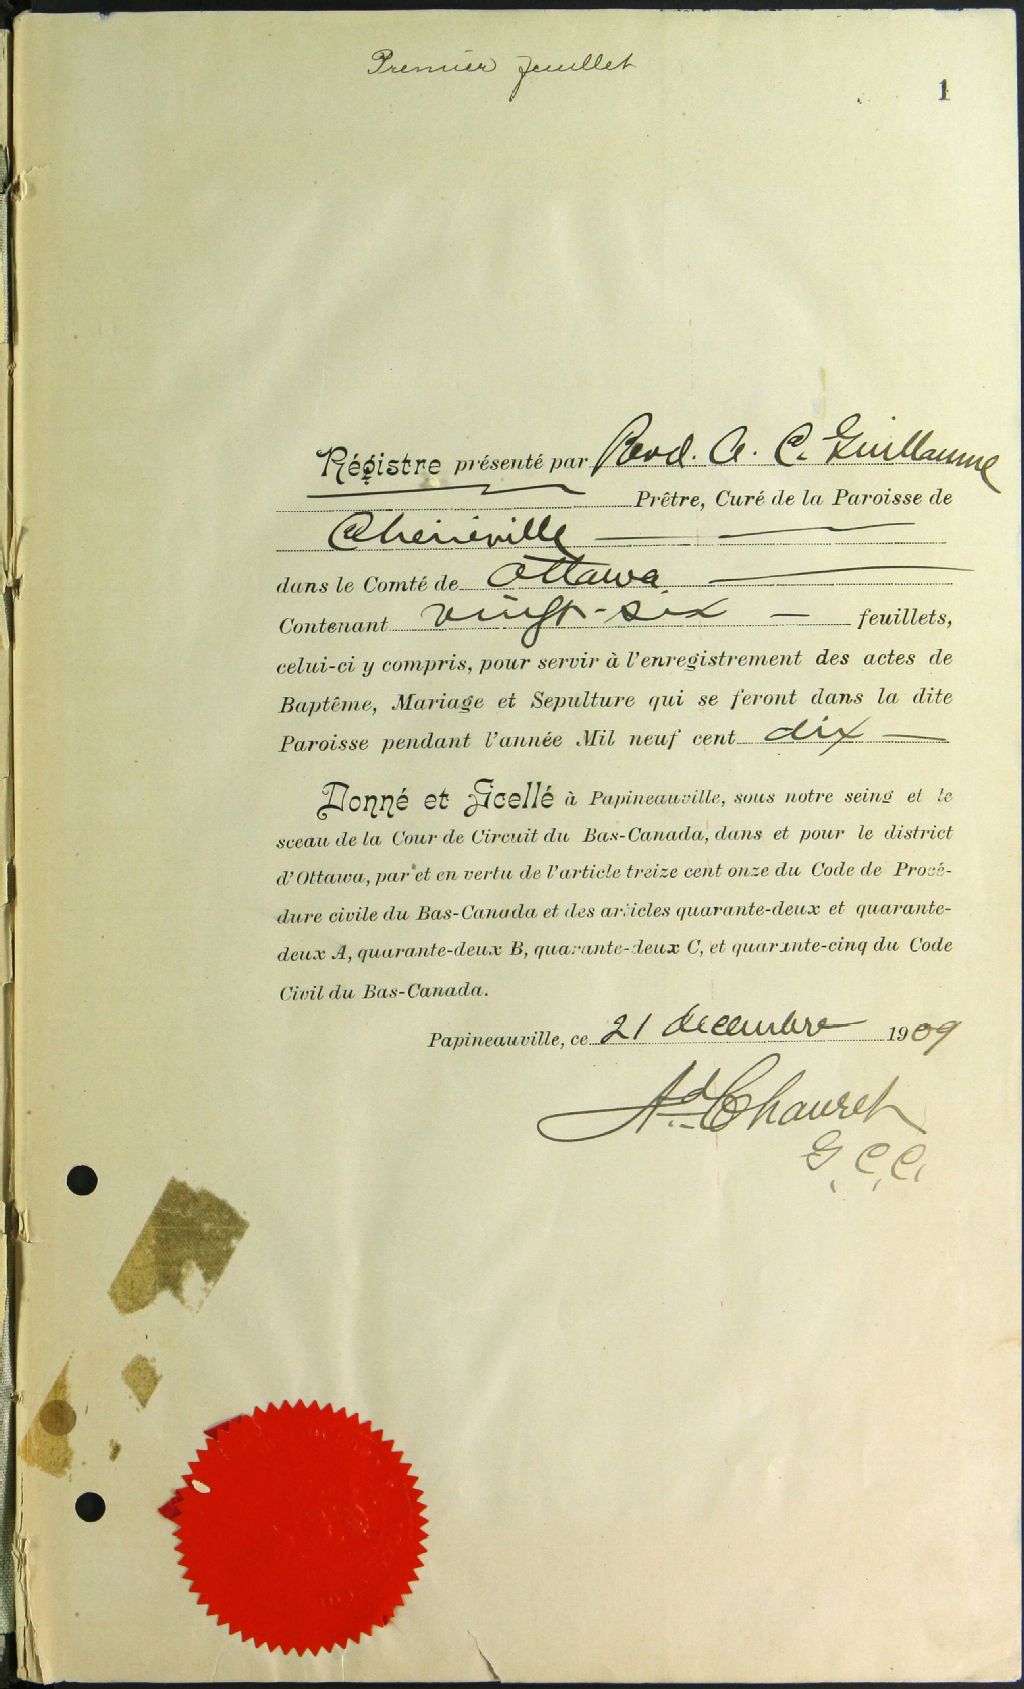 Premier feuillet
1
Régistre présenté par Revd. A. C. Guillaume
Prêtre, Curé de la Paroisse de
Chénéville
dans le Comté de Ottawa
Contenant vingt-six feuillets,
celui-ci y compris, pour servir à l'enregistrement des actes de
Baptême, Mariage et Sepulture qui se feront dans la dite
Paroisse pendant l'année Mil neuf cent dix
Donné et Scellé à Papineauville, sous notre seing et le
sceau de la Cour de Circuit du Bas-Canada, dans et pour le district
d'Ottawa, par et en vertu de l'article treize cent onze du Code de Procé-
dure civile du Bas-Canada et des articles quarante-deux et quarante-
deux A, quarante-deux B, quarante-deux C, et quarante-cinq du Code
Civil du Bas-Canada.
Papineauville, ce 21 decembre 1909
Ad. Chauret
G. C. C.